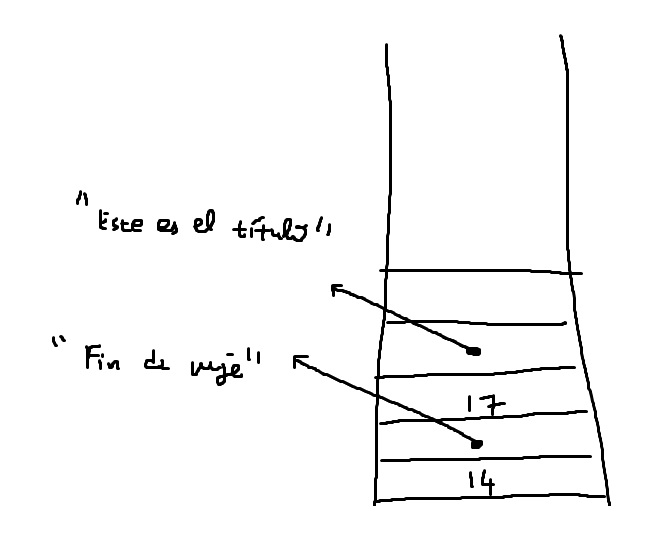 "Este es el título"
"Fin de viaje"
17
14